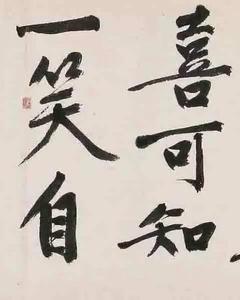 喜可知
一笑自